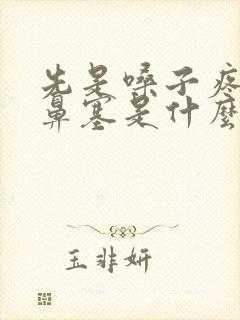 先是嗓子疼
鼻塞是什麼
玉非妍